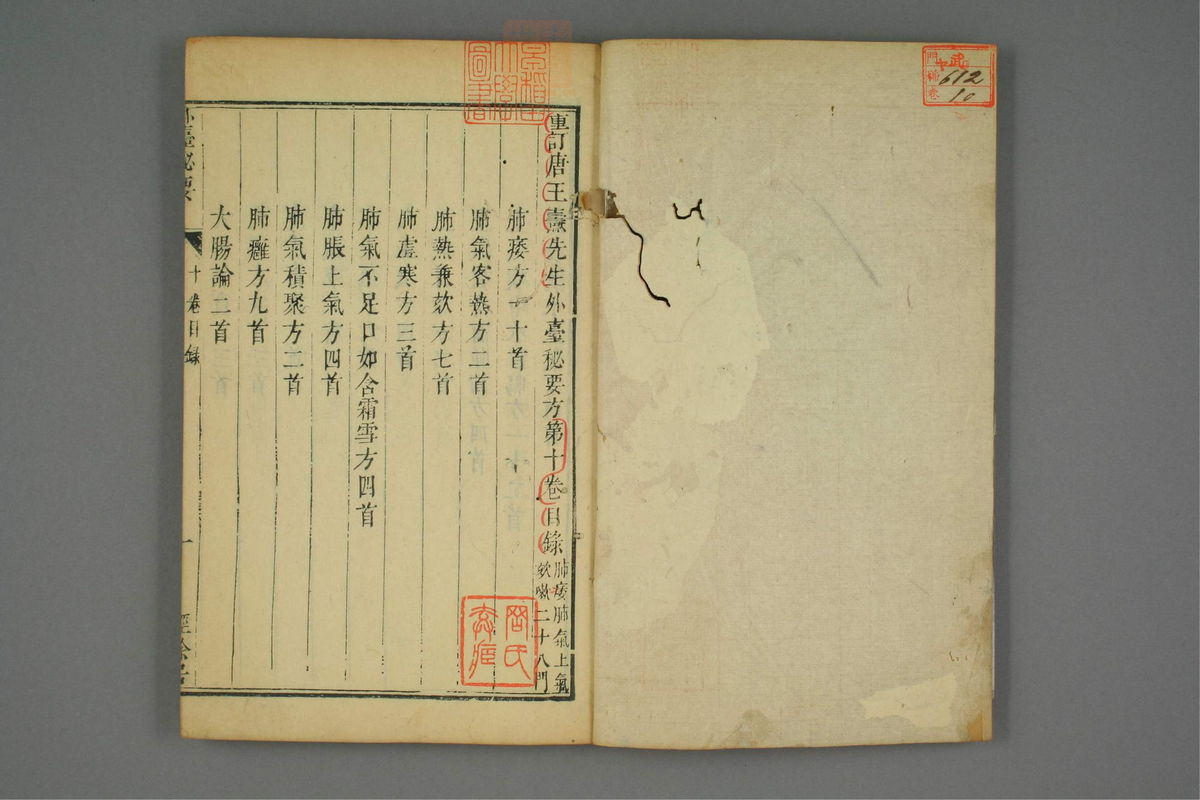 門
號
卷
612
10
重訂唐王燾先生外臺秘要方第十卷目錄
肺痿肺氣上氣
欬嗽二十八門
肺痿方一十首
肺氣客熱方二首
肺熱兼欬方七首
肺虛寒方三首
肺氣不足口如含霜雪方四首
肺脹上氣方四首
肺氣積聚方二首
肺癰方九首
大腸論二首
外臺秘要
十卷目錄
一
經餘居